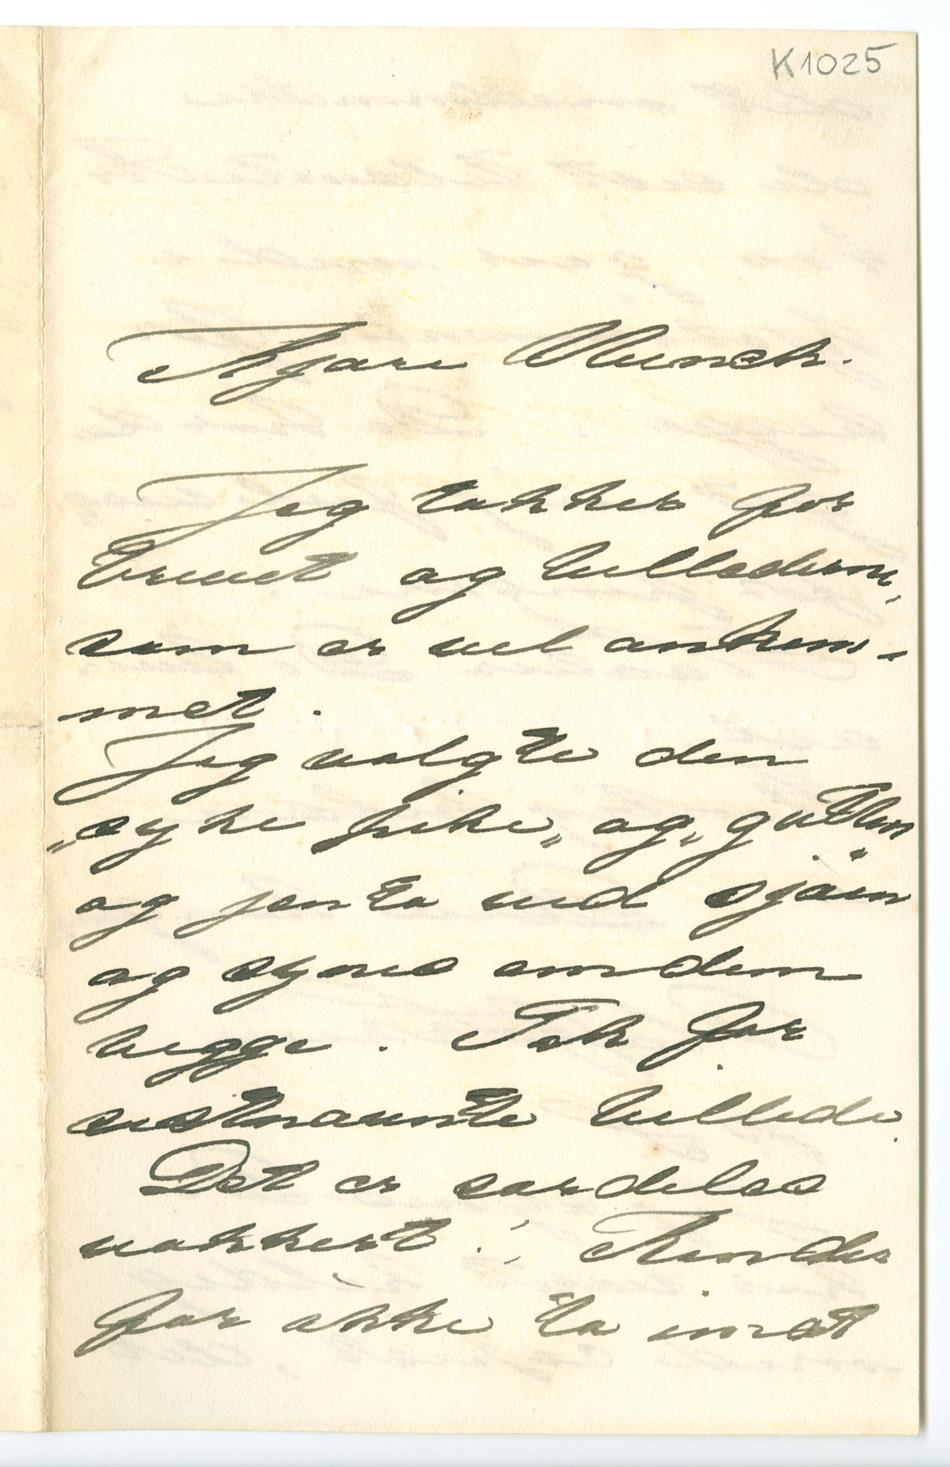 K1025
Kjære Munch.
Jeg takker for
brevet og billederne,
som er vel ankom-
met.
Jeg valgte den
„syke pike„ og „gutten
og jenta ved sjøen"
og synes om dem
begge. Tak for
sidstnævnte billede.
Det er særdeles
vakkert! Kender
for ikke ta imot